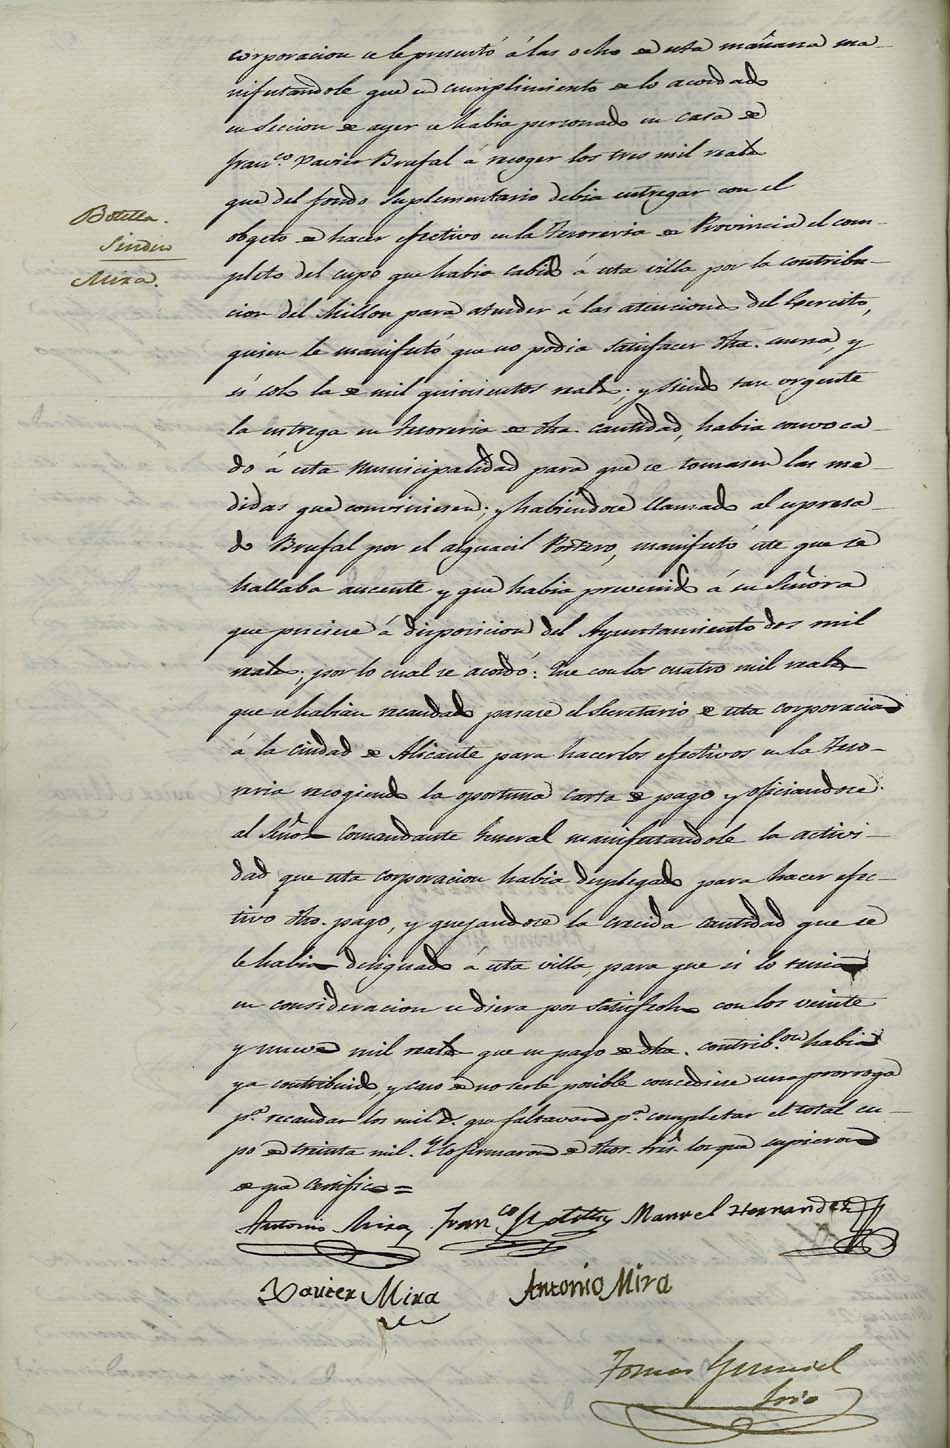 Botella.
Sindico
Mira.
corporacion se le presentó á las ocho de esta mañana ma-
nifestandole que en cumplimiento de lo acordado
en Seccion de ayer se habia personado en casa de
Fran.co Xavier Brufal á recoger los tres mil reales
que del fondo Suplementario debia entregar con el
obgeto de hacer efectivo en la Tesoreria de Provincia el com-
pleto del cupo que habia cabido á esta villa por la contribu-
cion del Millon para atender á las atenciones del Egercito,
quien le manifestó que no podia satisfacer dha. suma, y
si solo la de mil quinientos reales; y siendo tan urgente
la entrega en Tesoreria de dha. cantidad, habia convoca-
do á esta Municipalidad para que se tomasen las me-
didas que conviniesen; y habiendose llamado al expresa-
do Brufal por el alguacil Portero, manifestó este que se
hallaba ausente y que habia prevenido á su Señora
que pusiese á disposicion del Ayuntamiento dos mil
reales; por lo cual se acordó: Que con los cuatro mil reales
que se habian recaudado pasase el Secretario de esta corporacion
á la ciudad de Alicante para hacerlos efectivos en la Teso-
reria recogiendo la oportuna carta de pago y oficiandose
al Señor Comandante General manifestandole la activi-
dad que esta corporacion habia desplegado para hacer efec-
tivo dho. pago, y quejandose la crecida cantidad que se
le habia designado á esta villa para que si lo tenia
en consideracion se diera por satisfecho con los veinte
y nueve mil reales que en pago de dha. contrib.on habia
ya contribuido, y caso de no serle posible concediese una prorroga
p.a recaudar los mil r.s que faltavan p.a completar el total cu-
po de treinta mil. Y lo firmaron de dhos. Srs. los que supieron
de que certifico =
Antonio Mira Fran.co Botella Manuel Hernandez
Xavier Mira Antonio Mira
Tomas
Srio